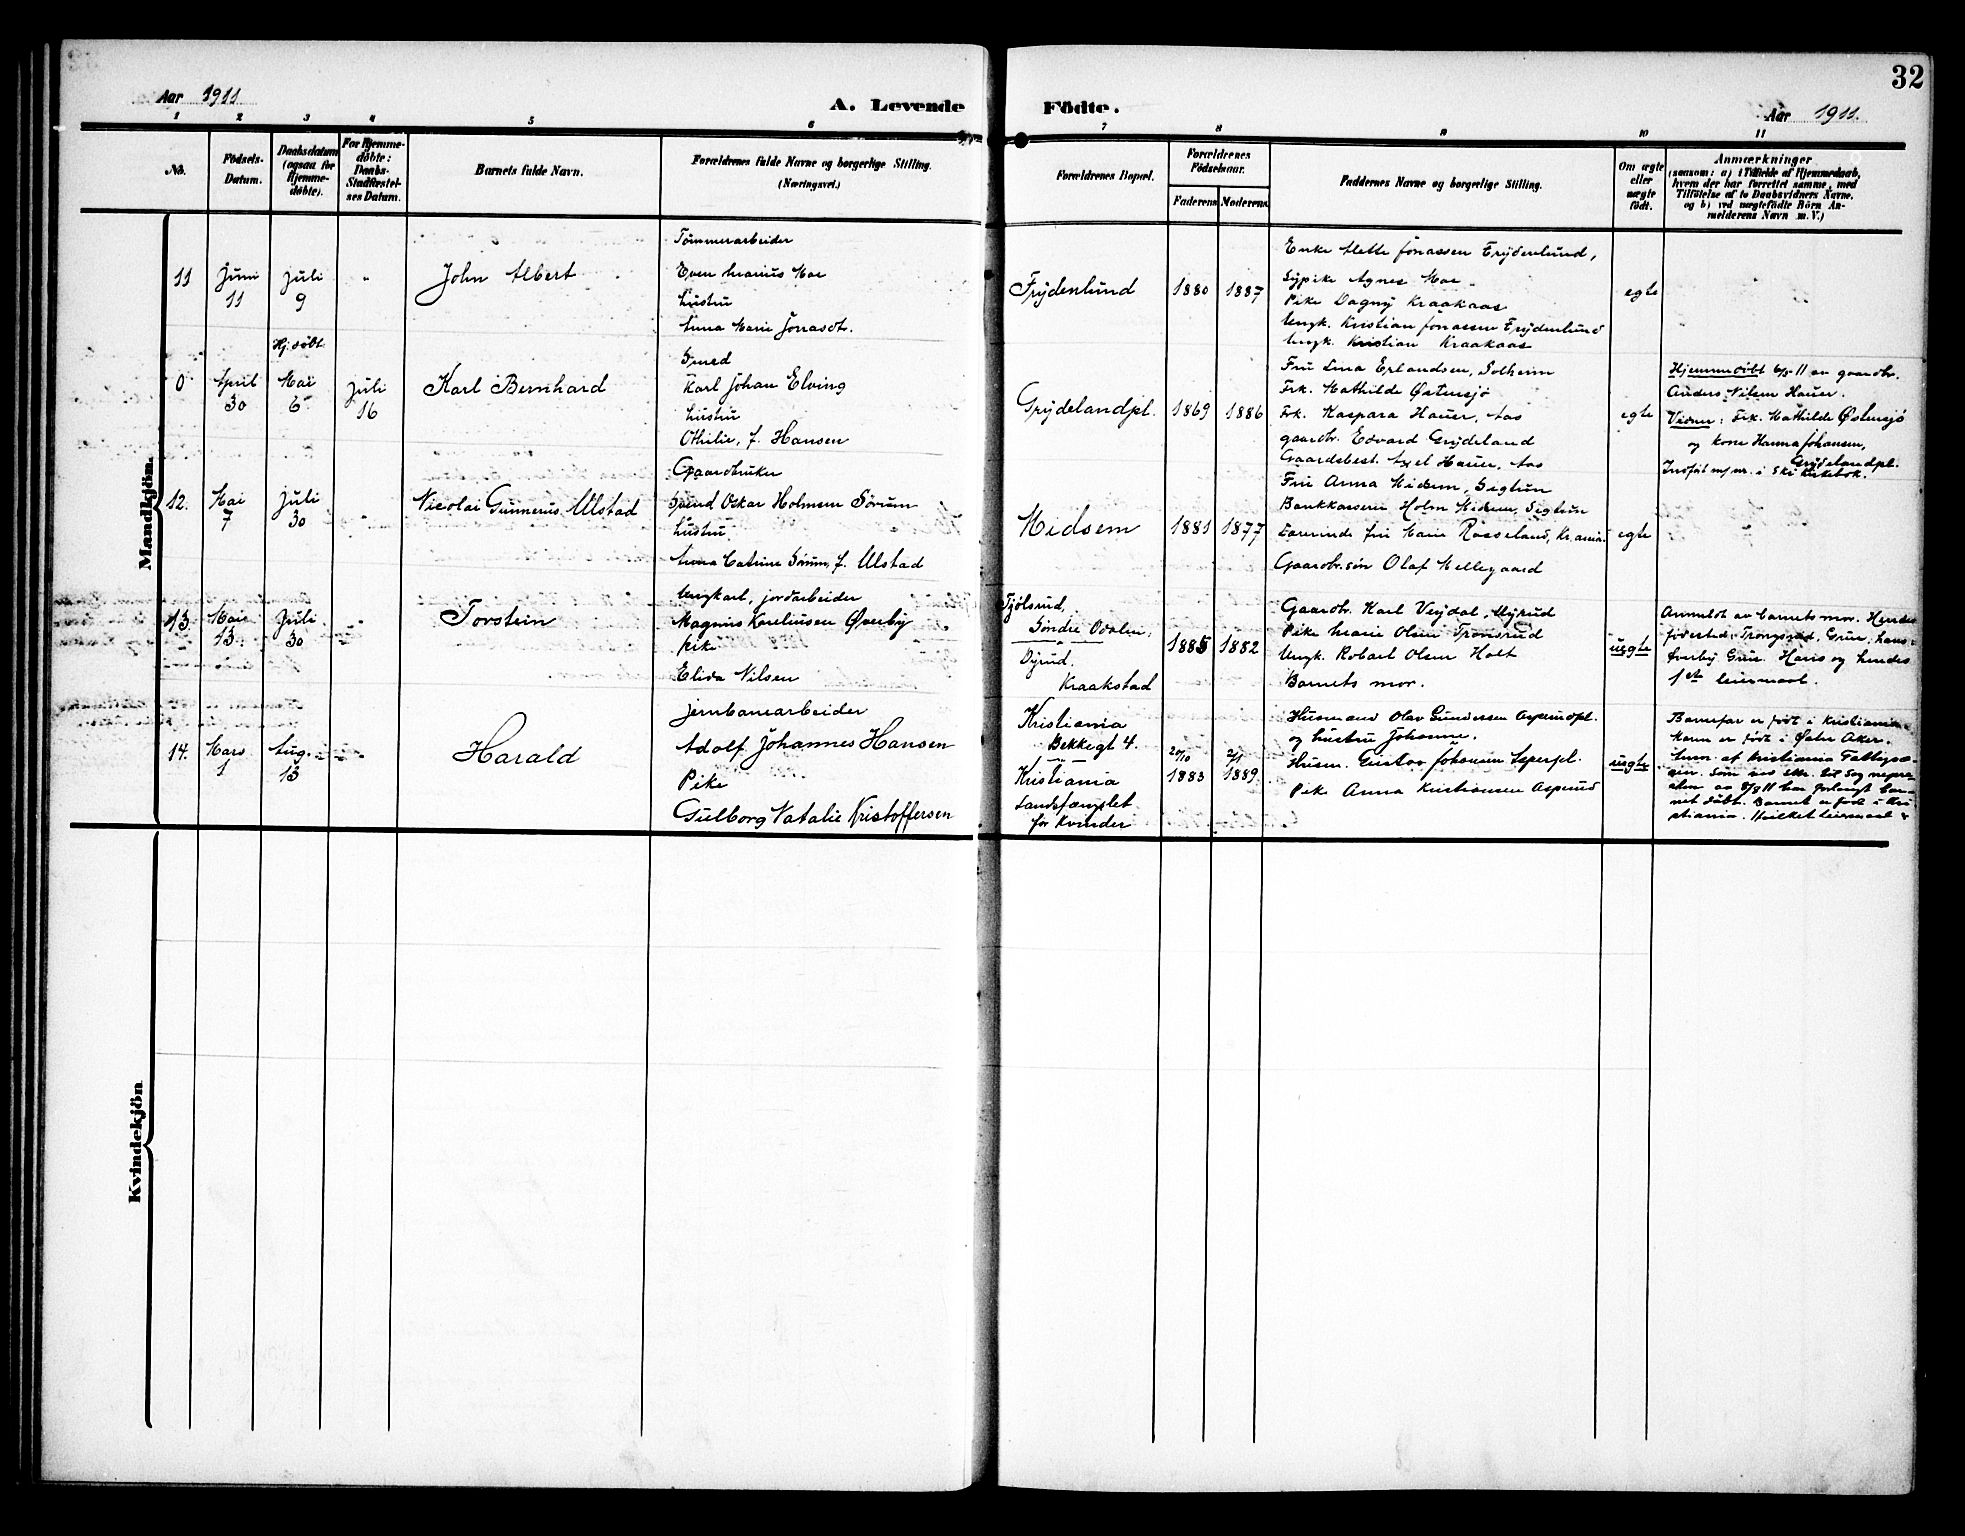 32
Aar 1911
A. Levende Födte.
Aar 1911.
1 2 3 4 5 6 7 8 9 10 11
No.
Födsels-
Datum.
Daabsdatum
(ogsaa for
Hjemme-
döbte).
For Hjemme-
döbte:
Daabs-
Stadfæstel-
ses Datum.
Barnets fulde Navn.
Forældrenes fulde Navne og borgerlige Stilling.
(Næringsvei.)
Forældrenes Bopæl.
Forældrenes
Födselsaar.
Faderens Moderens
Faddernes Navne og borgerlige Stilling.
Om ægte
eller
uægte
födt.
Anmærkninger
(saasom: a) i Tilfælde af Hjemmedaab,
hvem der har forrettet samme, med
Tilföielse af to Daabsvidners Navne,
og b) ved uægtefödte Börn An-
melderens Navn m. V.)
Mandkjön.
11
Juni
11
Juli
9
John Albert
Tømmerarbeider
Even Marius Moe
hustru
Anna Marie Jonasdt.
Frydenlund
1880
1887
Enke Mette Jonassen Frydenlund,
Sypike Agnes Moe
Pike Dagny Kraakaas
Ungk. Kristian Jonassen Frydenlund
Ungk. Kristian Kraakaas
egte
0
April
30
Hj. døbt
Mai
6
Juli
16
Karl Bernhard
Smed
Karl Johan Elving
hustru
Othilie, f. Hansen
Grydelandpl.
1869
1886
Fru Lina Erlandsen, Solheim
Frk. Mathilde Østensjø
Frk. Kaspara Hauer, Aas
gaardbr. Edvard Grydeland
Gaardsbest. Axel Hauer, Aas
egte
Hjemmedøbt 6/5 11 av gaardbr.
Anders Nilsen Hauer.
Vidner: Frk. Mathilde Østensjø
og kone Hanna Johansen,
Grydelandpl.
Indført m/nr. i Ski kirkebok.
12.
Mai
7
Juli
30
Nicolai Gunnerius Ulstad
Gaardbruker
Svend Oskar Holmsen Sørum
hustru
Anna Catrine Sørum, f. Ulstad
Midsem
1881
1877
Fru Anna Midsem, Sigtun
Bankkasserer Holm Midsem, Sigtun
Lærerinde frk Marie Rosseland, Kr.ania
Gaardbr.søn Olaf Mellegaard
egte
13.
Mai
13.
Juli
30
Torstein
Ungkarl, jordarbeider
Magnus Kareliusen Øverby
Pike
Elida Nilsen
Tjølsrud,
Søndre Odalen.
Dyrud,
Kraakstad
1885
1882
Gaardbr. Karl Vejdal, Myrud
Pike Marie Olsen Tronsrud
Ungk. Robart Olsen Holt
Barnets mor.
uegte
Anmeldt av barnets mor. Hendes
fødested: Grue, hans
Øverby Grue. Hans og hendes
1ste leiermaal.
14.
Mars
1
Aug.
13
Harald
Jernbanearbeider
Adolf Johannes Hansen
Pike
Gulborg Natalie Kristoffersen
Kristiania
Bekkegt 4.
Kristiania
Landsfængslet
for Kvinder
20/10
1883
2/1
1889
Husmand Olav Gundersen Aspemdpl.
og hustru Johanne.
Husm. Gustav Johansen
Pike Anna Kristiansen
uegte
Barnefar er født i Kristiania.
Moren er født i Østre Aker.
Anm. af Kristiania Fattigvæ-
sen. Som
har forlangt bar-
net døbt. Barnet er født i Kri-
stiania. Hvilket leiermaal
Kvindekjön